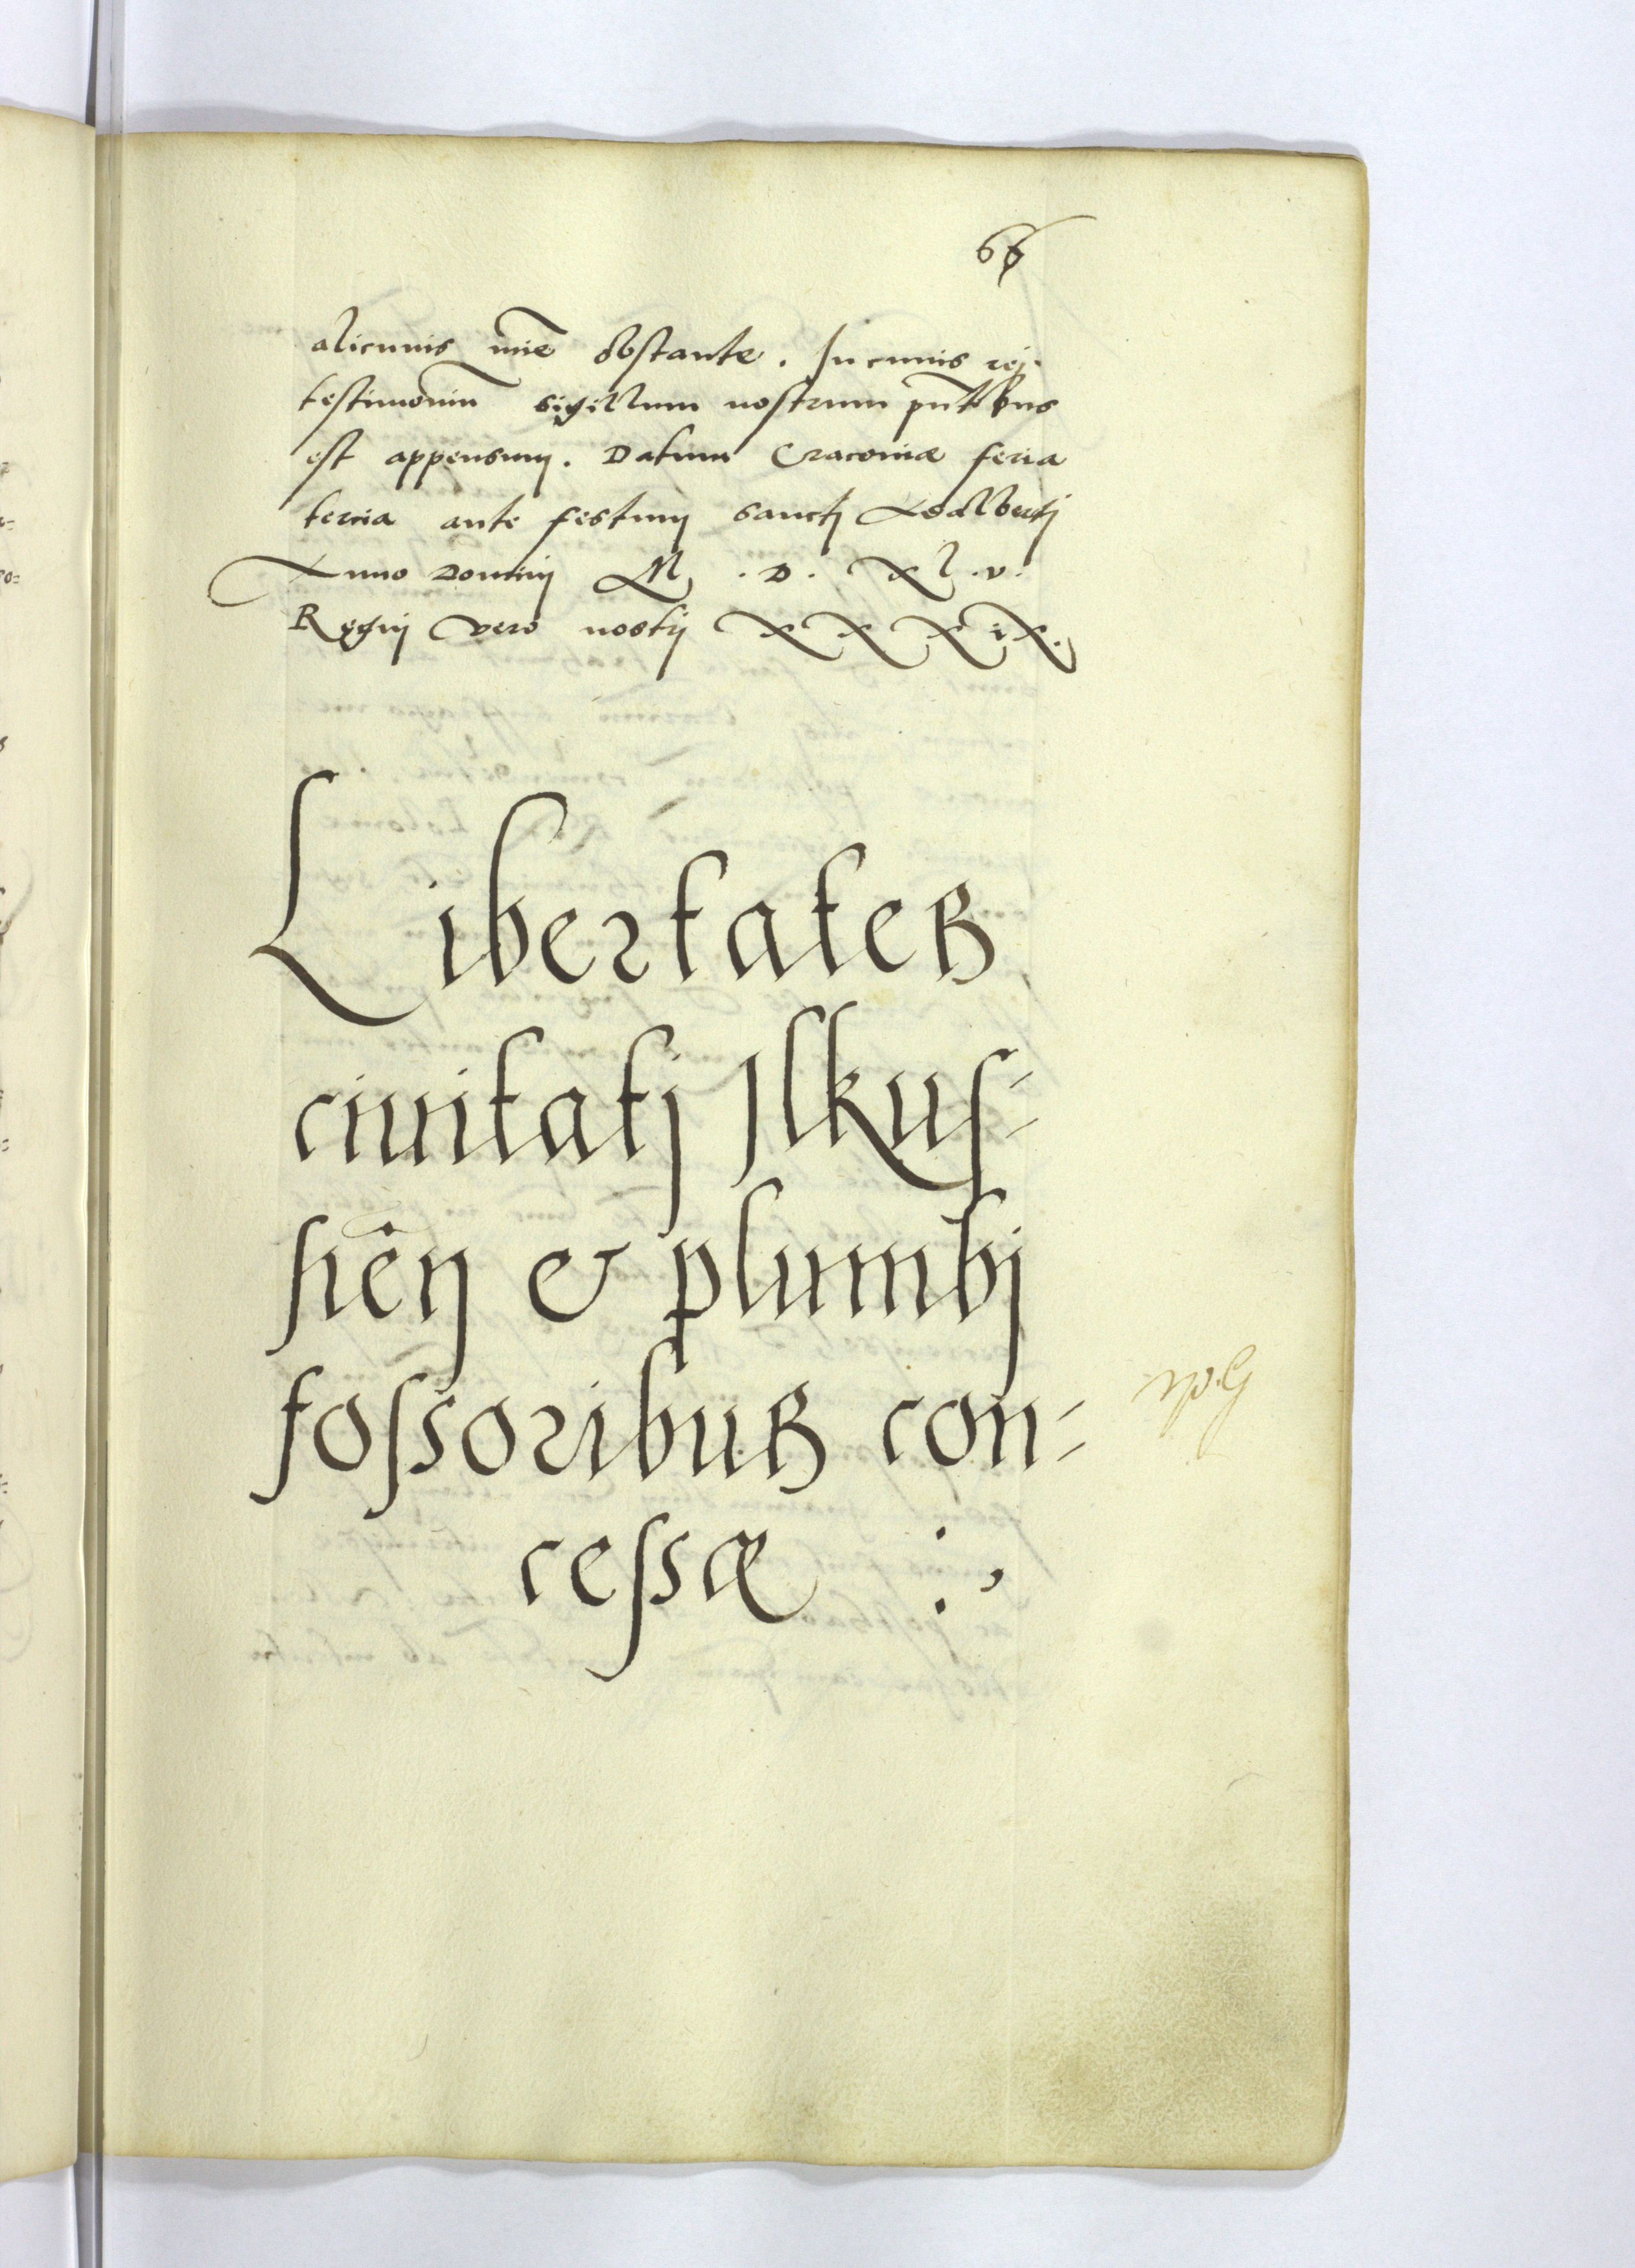 66
alicuius mīe obstante. In cuius rej
testimoniū sigillum nostrum pn̄tibus
est appensum. Datum Cracoviæ feria
tercia ante festum sanctj Adalbertj
Anno Dominj M. D. Xl. v.
Regnj vero nostrj XXXiX.
Libertates
civitatj Ilkus=
sien̄ & plumbj
fossoribus con=
cessæ